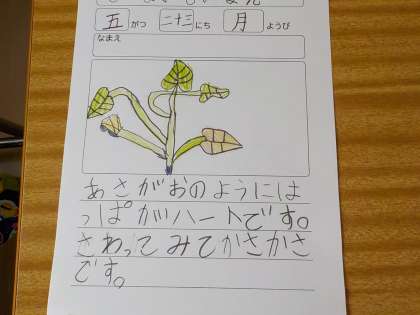 五がつ二十三にち月ようび
なまえ
あさがおのようにはȷ
っぱがハートです。
さわってみてかさかさ
です。